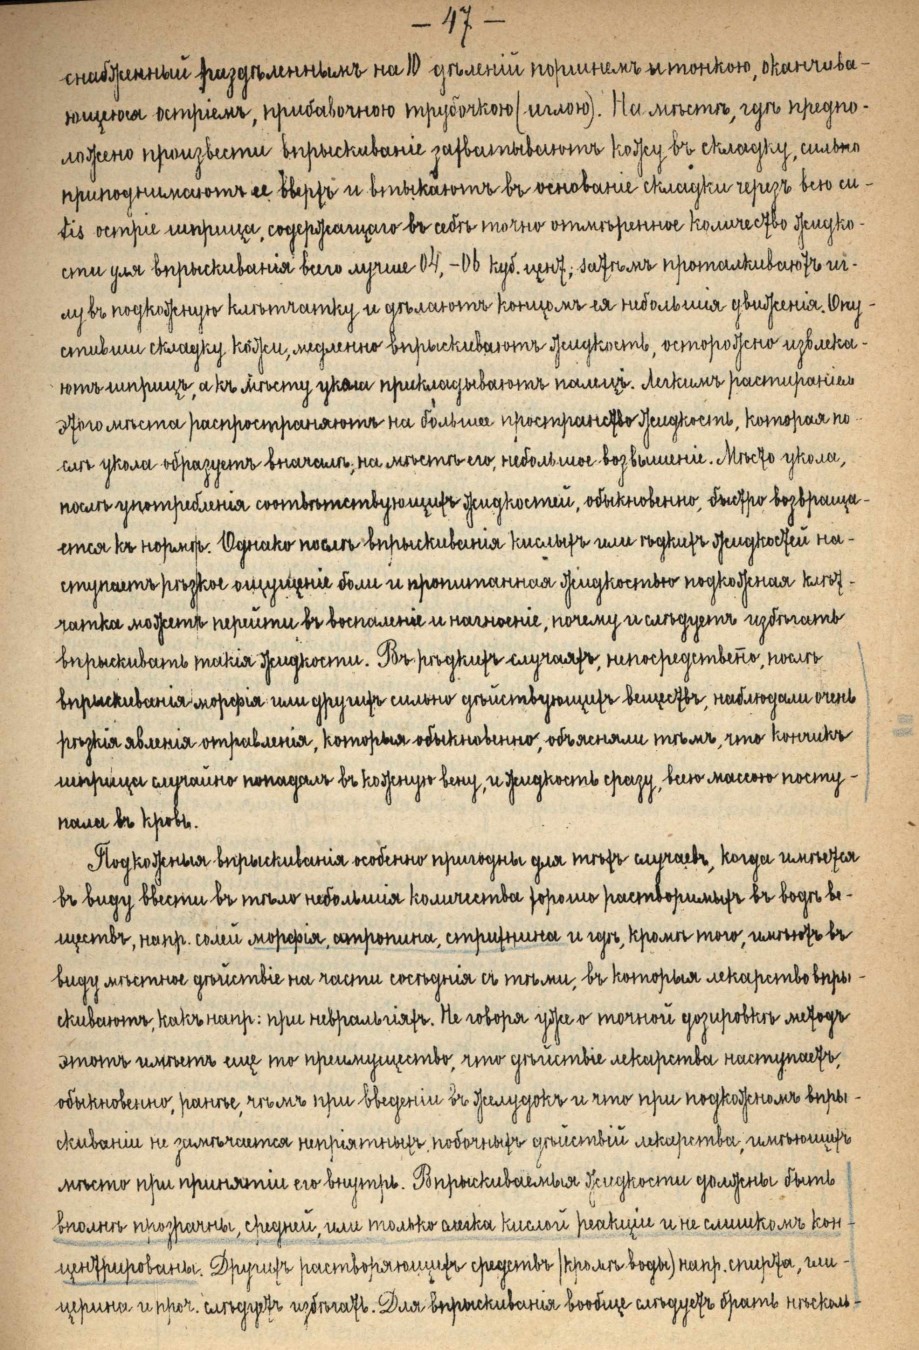 — 47 —
снабженный раздѣленнымъ на 10 дѣленій поршнемъ и тонкою, оканчива-
ющеюся остріемъ, прибавочною трубочкою (иглою). На мѣстѣ, гдѣ предпо-
ложено произвести впрыскиваніе захватываютъ кожу въ складку, сильно
приподнимаютъ ее вверхъ и втыкаютъ въ основаніе складки черезъ всю cu-
tis остріе шприца, содержащаго въ себѣ точно отмѣренное количество жидко-
сти для впрыскиванія всего лучше 04,-06 куб. цент; затѣмъ проталкиваютъ иг-
лу въ подкожную клѣтчатку и дѣлаютъ концомъ ея небольшія движенія. Опу-
стивши складку кожи, медленно впрыскиваютъ жидкость, осторожно извлека-
ютъ шприцъ, а къ мѣсту укола прикладываютъ палецъ. Легкимъ растираніемъ
этого мѣста распространяютъ на большее пространство жидкость, которая по
слѣ укола образуетъ вначалѣ, на мѣстѣ его, небольшое возвышеніе. Мѣсто укола,
послѣ употребленія соотвѣтствующихъ жидкостей, обыкновенно, быстро возвраща-
ется къ нормѣ. Однако послѣ впрыскиванія кислыхъ или ѣдкихъ жидкостей на-
ступаетъ рѣзкое ощущеніе боли и пропитанная жидкостью подкожная клѣт-
чатка можетъ перейти въ воспаленіе и нагноеніе, почему и слѣдуетъ избѣгать
впрыскивать такія жидкости. Въ рѣдкихъ случаяхъ, непосредствен̄о, послѣ
впрыскиванія морфія или другихъ сильно дѣйствующихъ веществъ, наблюдали очень
рѣзкія явленія отравленія, которыя обыкновенно, объясняли тѣмъ, что кончикъ
шприца случайно попадалъ въ кожную вену, и жидкость сразу, всею массою посту-
пала въ кровь.
Подкожныя впрыскиванія особенно пригодны для тѣхъ случаевъ, когда имѣется
въ виду ввести въ тѣло небольшія количества хорошо растворимыхъ въ водѣ ве-
ществъ, напр. солей морфія, атропина, стрихнина и гдѣ, кромѣ того, имѣютъ въ
виду мѣстное дѣйствіе на части сосѣднія съ тѣми, въ которыя лекарство впры-
скиваютъ, какъ напр: при невральгіяхъ. Не говоря уже о точной дозировкѣ методъ
этотъ имѣетъ еще то преимущество, что дѣйствіе лекарства наступаетъ,
обыкновенно, ранѣе, чѣмъ при введеніи въ желудокъ и что при подкожномъ впры-
скиваніи не замѣчается непріятныхъ побочныхъ дѣйствій лекарства, имѣющихъ
мѣсто при принятіи его внутрь. Впрыскиваемыя жидкости должны быть
вполнѣ прозрачны, средней, или только слегка кислой реакціи и не слишкомъ кон-
центрированы. Другихъ растворяющихъ средствъ (кромѣ воды) напр. спирта, гли-
церина и проч. слѣдуетъ избѣгать. Для впрыскиванія вообще слѣдуетъ брать нѣсколь-